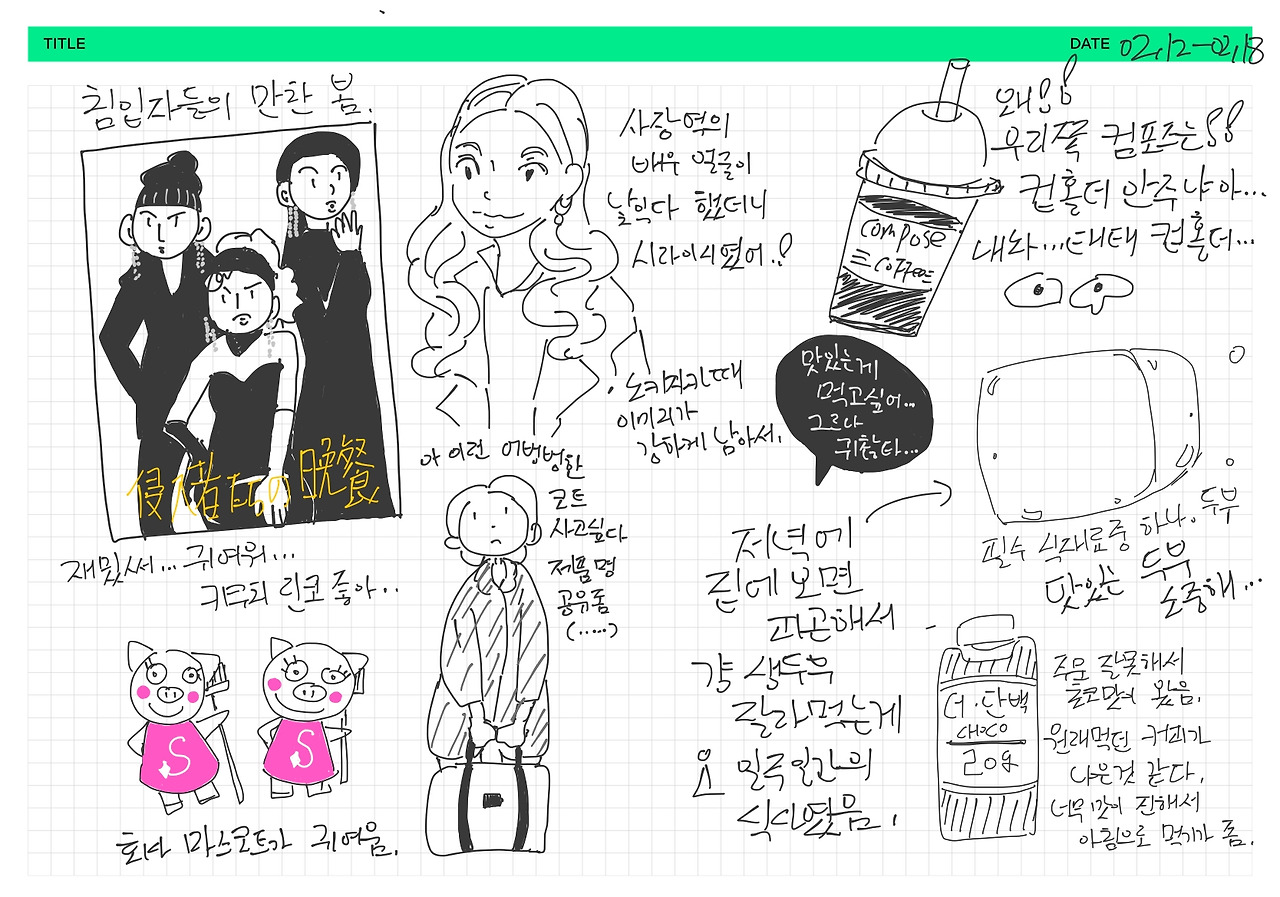 TITLE
DATE 02.12-02.18
침입자들의 만찬 봄.
侵入者たちの晩餐
재밌써... 귀여워...
키쿠치 린코 좋아...
회사 마스코트가 귀여움.
S
S
사장역의
배우 얼굴이
낯익다 했더니
시라이시였어..!
노키자카때
이미지가
강하게 남아서.
아 이런 어벙벙한
코트
사고싶다
제품명
공유좀
(.....)
왜!!
우리쪽 컴포즈는!!
컵홀더 안주냐아...
내놔...태태 컵홀더...
compose
coffee
맛있는게
먹고싶어...
그러나
귀찮타...
저녁에
집에 오면
피곤해서
걍 생두부
잘라먹는게
일주일간의
식사였음.
필수 식재료중 하나. 두부
맛있는 두부
소중해...
더·단백
choco
20g
주문 잘못해서
초코맛이 왔음.
원래먹던 커피가
나은것 같다.
너무 맛이 진해서
아침으로 먹기가 좀.